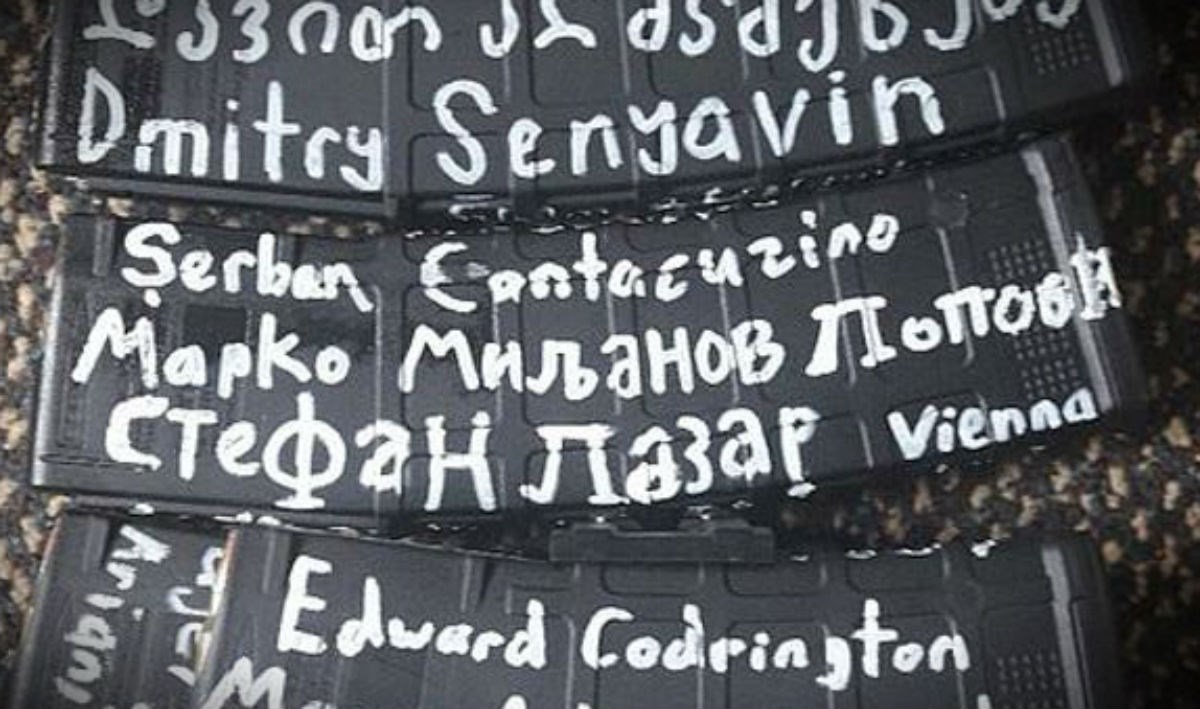 დავით აღმაშენებელი
Dmitry Senyavin
Șerban Cantacuzino
Марко Миљанов Попови
Стефан Лазар Vienna
Edward Codrington